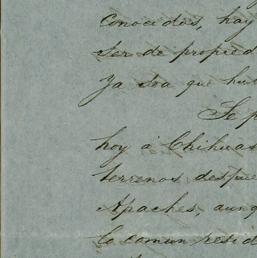 Conocidos, hay
ser de propied
Ya sea que hu
Se p
hoy á Chihua
terrenos despue
Apaches, aunq
lo comun presid